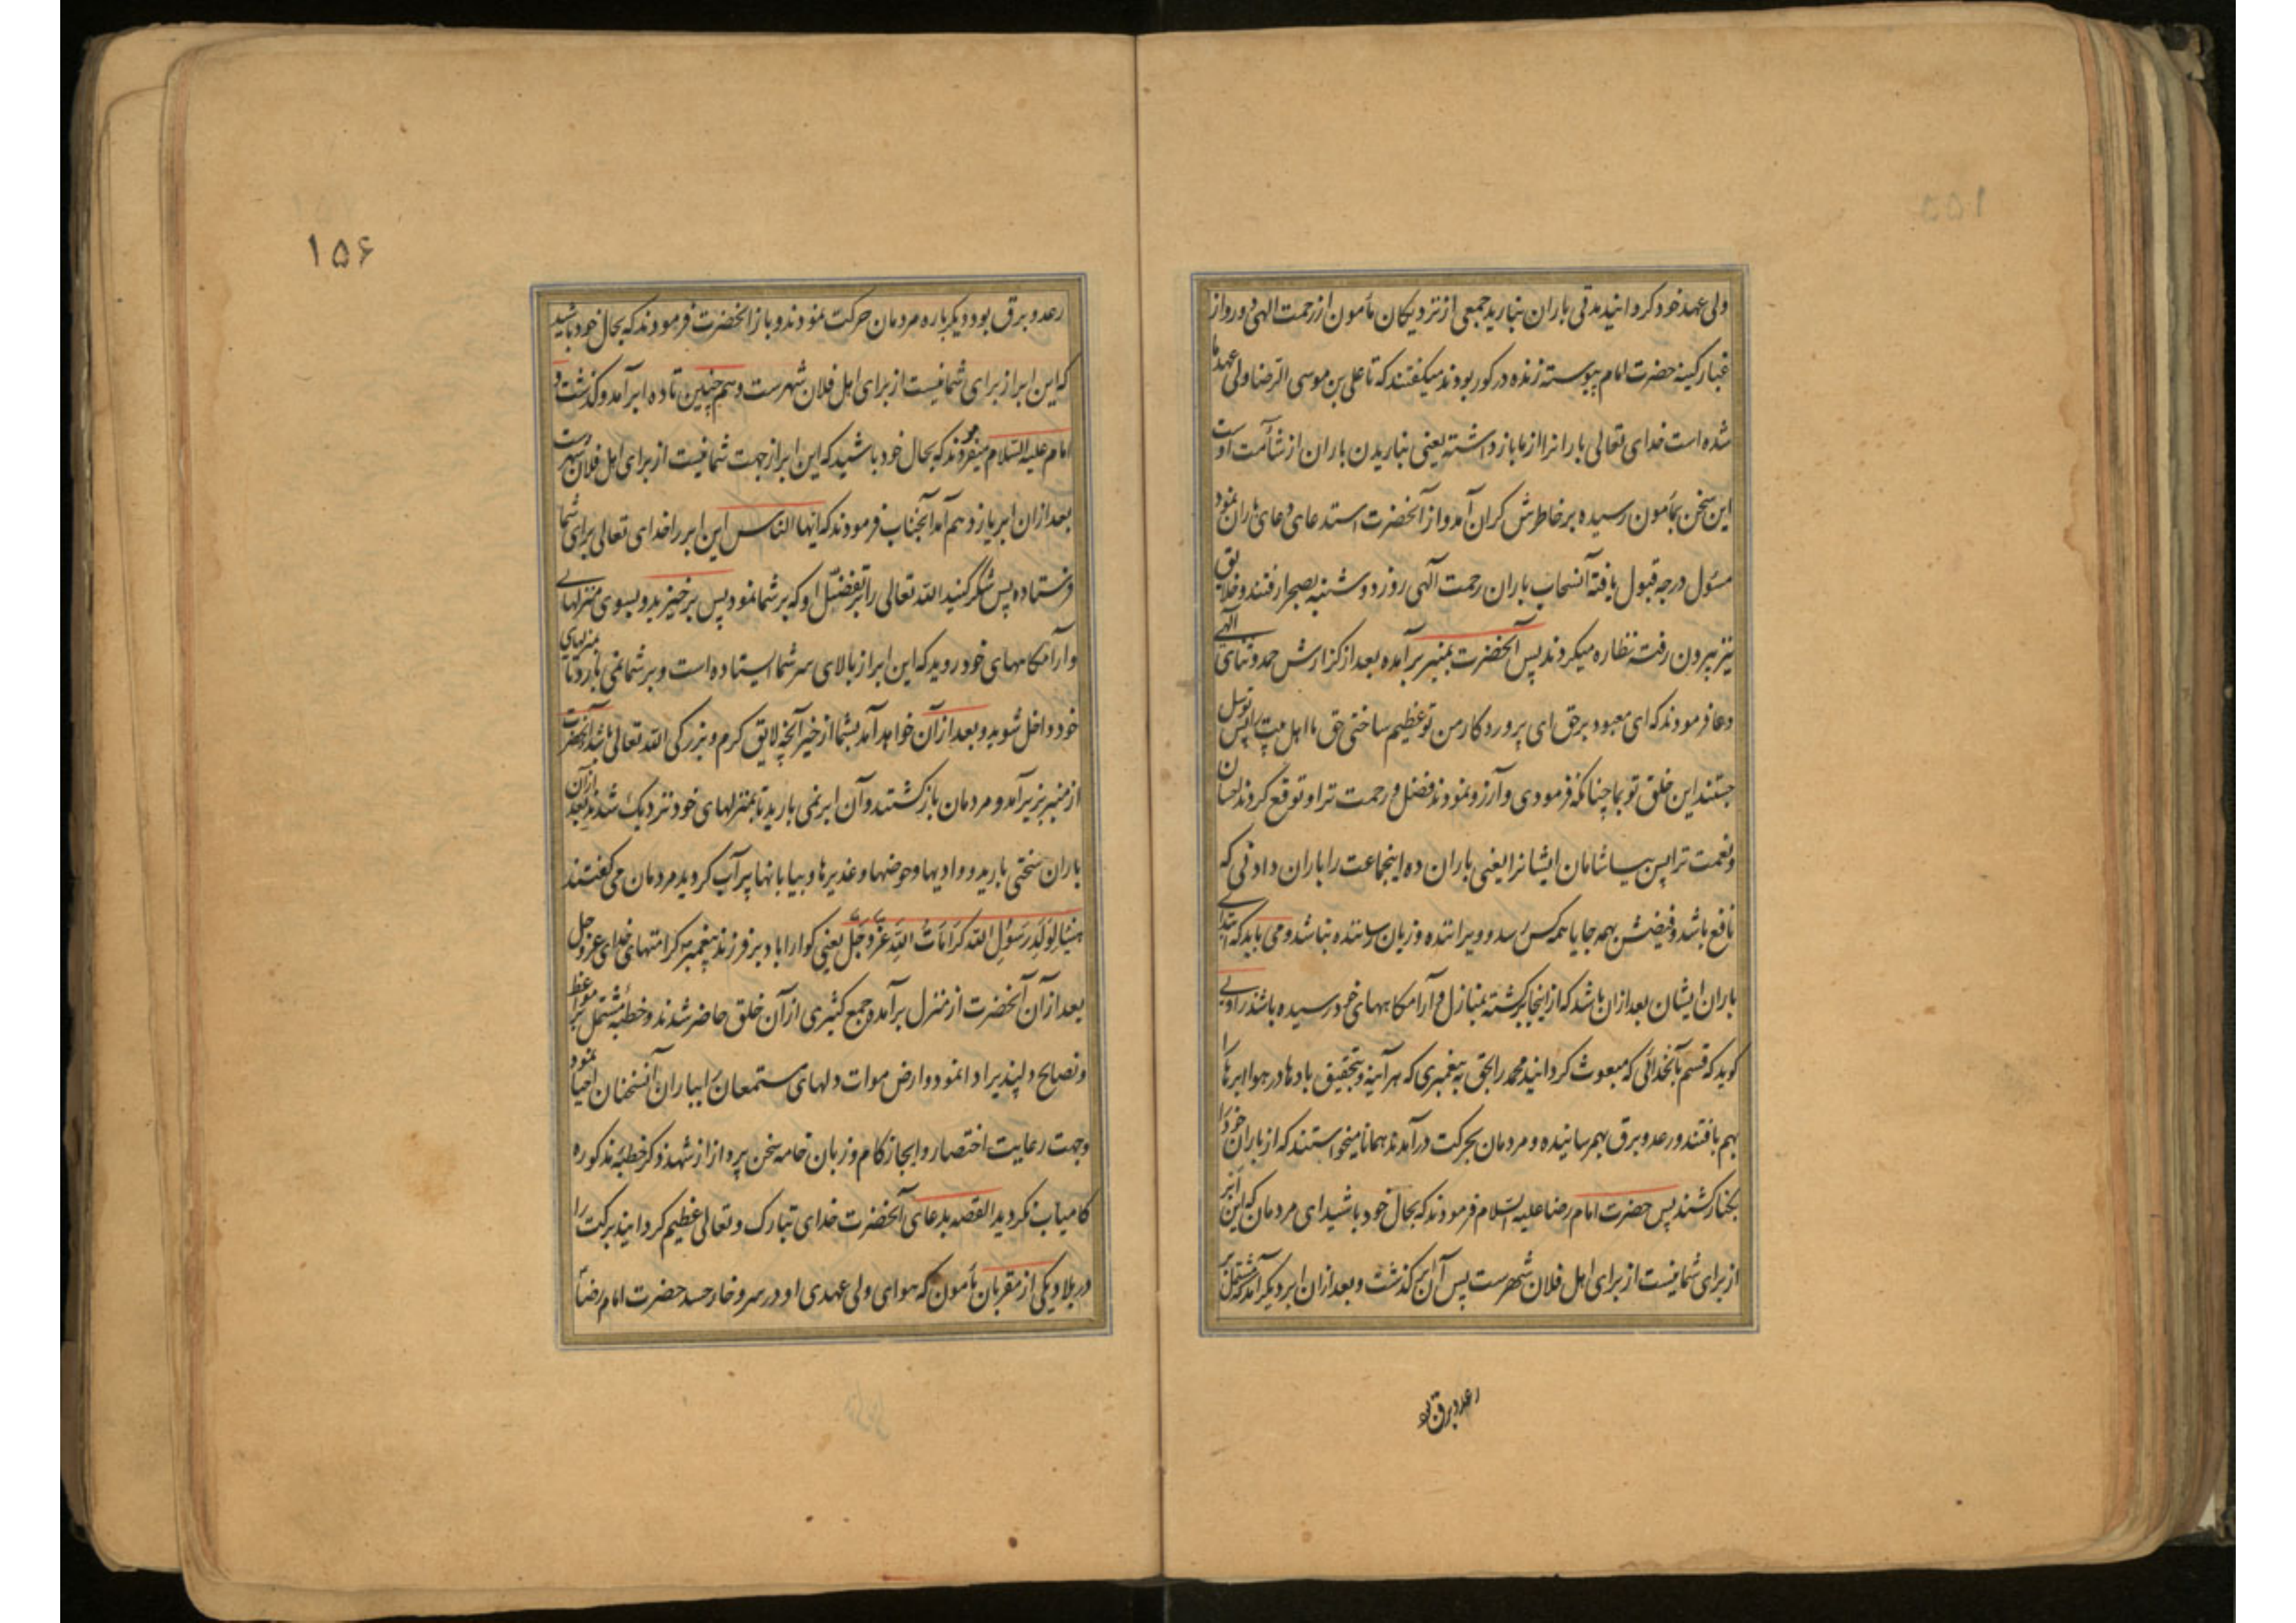 ولی عهد خود کردانید مدتی باران نبارید جمعی از نزدیکان مأمون از رحمت الهی دور و از
غبار کینه حضرت امام پیوسته زنده در کور بودند میکفتند که تا علی بن موسی الرضا ولی عهد ما
شده است خدای تعالی بارانرا از ما باز داشته یعنی نباریدن باران از شآمت اوست
این سخن بمأمون رسیده بر خاطرش کران آمد و از آنحضرت استدعای دعای باران نمود
مسؤل درجه قبول یافته آنسحاب باران رحمت آلهی روز دوشنبه بصحرا رفتند و خلایق
نیز بیرون رفته نظاره میکردند پس آنحضرت بمنبر برآمده بعد از کزارش حمد و ثنای آلهی
و دعا فرمودند که ای معبود برحق ای پروردکار من تو عظیم ساختی حق ما اهل بیت را پس توسل
جستند این خلق تو بما چنانکه فرمودی و آرزو نمودند فضل و رحمت ترا و توقع کردند احسان
و نعمت ترا پس بیاشامان ایشانرا یعنی باران ده اینجماعت را باران دادنی که
نافع باشد و فیضش بهمه جا یا همه کس رسد و ویراننده و زیان رساننده نباشد و می باید که ابتدای
باران ایشان بعد ازان باشد که از اینجا برکشته بمنازل و آرامکاههای خود رسیده باشند راوی
کوید که قسم بآنخدائی که مبعوث کردانید محمد را بحق به پیغمبری که هرآینه و بتحقیق بادها در هوا ابرها را
بهم بافتند و رعد و برق بهم رسانیده و مردمان بحرکت درآمدند همانا میخواستند که از باران خود را
بکنار کشند پس حضرت امام رضا علیه السلام فرمودند که بحال خود باشید ای مردمان که این ابر
از برای شما نیست از برای اهل فلان شهرست پس آن ابر کذشت و بعد ازان ابر دیکر آمد که مشتمل بر
رعد و برق بود
۱۵۵
۱۵۶
رعد و برق بود و دیکرباره مردمان حرکت نمودند و باز انحضرت فرمودند که بحال خود باشید
که این ابر از برای شما نیست از برای اهل فلان شهرست و هم چنین تا ده ابر آمد و کذشت و
امام علیه السلام میفرمودند که بحال خود باشید که این ابر از جهت شما نیست از برای اهل فلان شهرست
بعد ازان ابر یازدهم آمد آنجناب فرمودند که ایها الناس این ابر را خدای تعالی برای شما
فرستاده پس شکر کنید الله تعالی را بر تفضّل او که بر شما نمود پس برخیزید و بسوی منزلهای
و آرامکاههای خود روید که این ابر از بالای سر شما ایستاده است و بر شما نمی بارد تا بمنزلهای
خود داخل شوید و بعد از آن خواهد آمد بشما از خیر آنچه لایق کرم و بزرکی الله تعالی باشد آنحضرت
از منبر بزیر آمد و مردمان بازکشتند و آن ابر نمی بارید تا بمنزلهای خود نزدیک شدند بعد از آن
باران سختی بارید و وادیها و حوضها و غدیرها و بیابانها پر آب کردید مردمان می کفتند
هنیئا لولد رسول الله کرامات الله عزّ و جلّ یعنی کوارا باد بر فرزند پیغمبر کرامتهای خدای عز و جل
بعد از آن آنحضرت از منزل برآمد و جمع کثیری از آن خلق حاضر شدند و خطبهٔ مشتمل بر مواعظ
و نصایح دلپذیر ادا نمود و ارض موات دلهای مستمعان را بباران آنسخنان احیا نمود
و جهت رعایت اختصار و ایجاز کام و زبان خامه سخن پرداز از شهد ذکر خطبهٔ مذکوره
کامیاب نکردید القصه بدعای آنحضرت خدای تبارک و تعالی عظیم کردانید برکت را
در بلاد و یکی از مقربان مأمون که هوای ولی عهدی او در سر و خار حسد حضرت امام رضا